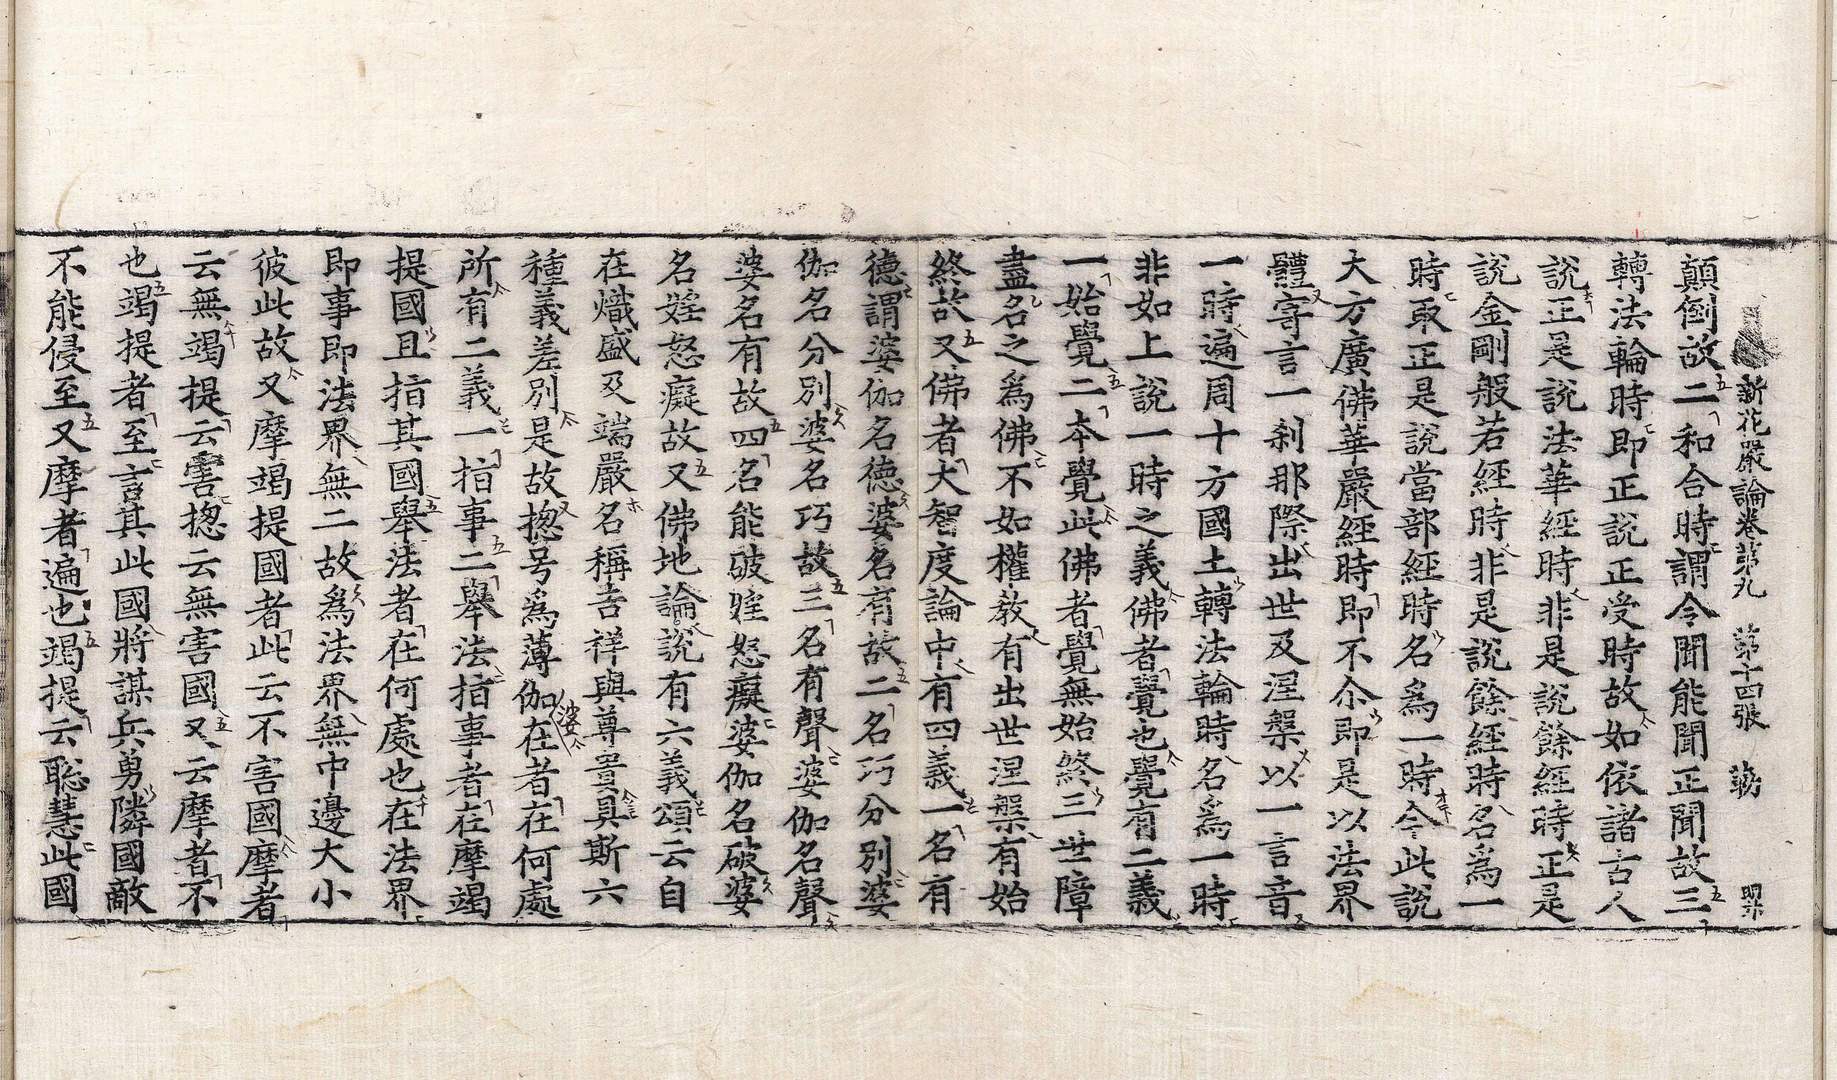 新花嚴論卷第九 第十四張 莇
顛倒故二和合時謂令聞能聞正聞故三
轉法輪時即正說正受時故如依諸古人
說正是說法華經時非是說餘經時正是
說金剛般若經時非是說餘經時名爲一
時取正是說當部經時名爲一時今此說
大方廣佛華嚴經時即不尒即是以法界
軆寄言一剎那際出世及涅槃以一言音
一時遍周十方國土轉法輪時名爲一時
非如上說一時之義佛者覺也覺有二義
一始覺二本覺此佛者覺無始終三世障
盡名之爲佛不如權教有出世涅槃有始
終故又佛者大智度論中有四義一名有
德謂婆伽名德婆名有故二名巧分別婆
伽名分別婆名巧故三名有聲婆伽名聲
婆名有故四名能破婬怒癡婆伽名破婆
名婬怒癡故又佛地論說有六義頌云自
在熾盛及端嚴名稱吉祥與尊貴具斯六
種義差別是故揔号爲薄伽在者在何處
婆
所有二義一指事二舉法指事者在摩竭
提國且指其國舉法者在何處也在法界
即事即法界無二故爲法界無中邊大小
彼此故又摩竭提國者此云不害國摩者
云無竭提云害揔云無害國又云摩者不
也竭提者至言其此國將謀兵勇隣國敵
不能侵至又摩者遍也竭提云聡慧此國